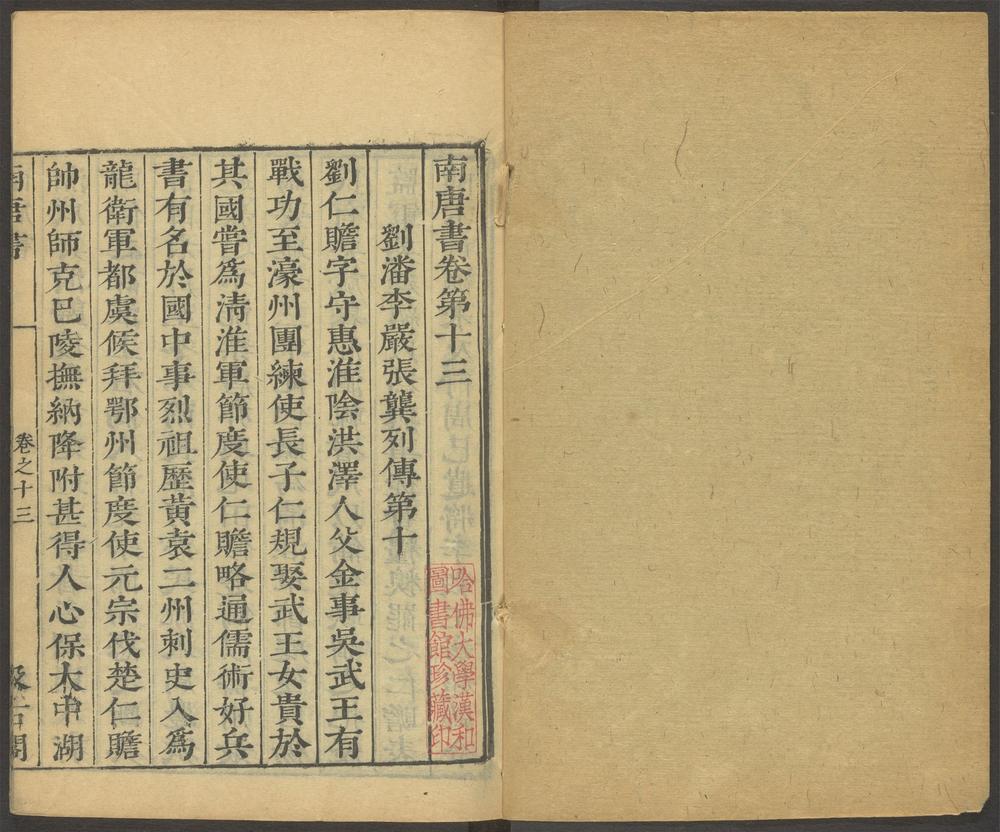 南唐書卷第十三
劉潘李嚴張龔列傳第十
劉仁贍字守惠淮陰洪澤人父金事吳武王有
戰功至濠州團練使長子仁規娶武王女貴於
其國嘗爲淸淮軍節度使仁贍略通儒術好兵
書有名於國中事烈祖歷黃袁二州刺史入爲
龍衛軍都虞候拜鄂州節度使元宗伐楚仁贍
帥州師克巴陵撫納降附甚得人心保大中湖
南唐書
卷之十三
汲古閣
哈佛大學漢和
圖書館珍藏印